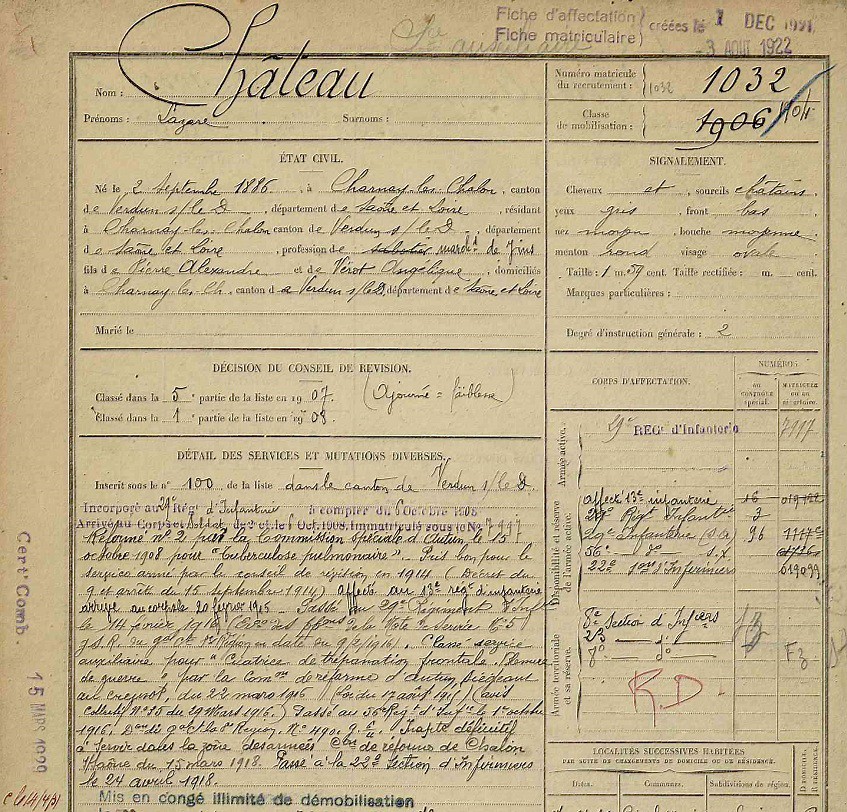 Fiche d'affectation
Fiche matriculaire
créées le 1 DEC
-3 AOUT 1922
Nom : Château
Prénoms : Lazare Surnoms :
Numéro matricule du recrutement : 1032 1032
Classe de mobilisation : 1906
ÉTAT CIVIL.
Né le 2 Septembre 1886, à Charnay-les-Chalon, canton
de Verdun s/le D, département de Saône et Loire, résidant
à Charnay les Chalon canton de Verdun s/le D, département
de Saône et Loire, profession de sabotier march.d de vins
fils de Pierre Alexandre et de Vérot Angélique, domiciliés
à Charnay les Ch. canton de Verdun s/le D, département de Saône et Loire
Marié le
SIGNALEMENT.
Cheveux et sourcils châtains,
yeux gris, front bas
nez moyen, bouche moyenne
menton rond visage ovale
Taille : 1 m. 59 cent. Taille rectifiée : m. cent.
Marques particulières :
Degré d'instruction générale : 2
DÉCISION DU CONSEIL DE REVISION.
Classé dans la 5e partie de la liste en 1907. (Ajourné = faiblesse)
Classé dans la 1e partie de la liste en 1908.
DÉTAIL DES SERVICES ET MUTATIONS DIVERSES.
Inscrit sous le n° 100 de la liste dans le canton de Verdun s/le D.
Incorporé au 29e Régt d'Infanterie à compter du 6 Octobre 1908
Arrivé au Corps et Soldat de 2e cl. le 6 Oct. 1908. Immatriculé sous le No 7117
Réformé n° 2 par la Commission spéciale d'Autun, le 15
octobre 1908 pour "Tuberculose pulmonaire". Pris bon pour le
service armé par le conseil de révision en 1914 (Décret du
9 et arrêté du 15 septembre 1914) affecté au 13e rég. d'infanterie
arrivé au corps le 20 février 1915. Passé au 29e Régiment d'Inf
le 14 février 1916
en date du 9/2/1916). Classé service
auxiliaire pour "Cicatrice de trépanation frontale. Blessure
de guerre" par la Comon de réforme d'Autun siégeant
au Creusot, du 22 mars 1916 (Loi du 17 août 1915) (avis
collectif N° 25 du 29 Mars 1916.) Passé au 56e Rég.t d'Inf.ie le 1er octobre
1916. Inapte définitif
à servir dans la zone des armées Cion de réforme de Chalon
s/Saône du 15 mars 1918. Passé à la 22e Section d'Infirmiers
le 24 avril 1918.
Mis en congé illimité de démobilisation
CORPS D'AFFECTATION.
NUMÉROS
AU CONTRÔLE SPÉCIAL.
MATRICULE OU AU RÉPERTOIRE.
Armée active.
29e REGt d'Infanterie 7117
Disponibilité et réserve de l'armée active.
Affect 13e infanterie 16
29e Régt Infantie 3
29e Infanterie (S.A) 96
56e do S.X
22e Son d'Infirmiers
Armée territoriale et sa réserve.
8e Section d'Infiers
R.D.
LOCALITÉS SUCCESSIVES HABITÉES
PAR SUITE DE CHANGEMENTS DE DOMICILE OU DE RÉSIDENCE.
Dates. Communes. Subdivisions de région.
D. DOMICILE. R. RÉSIDENCE.
Cert. Comb.
15 MARS